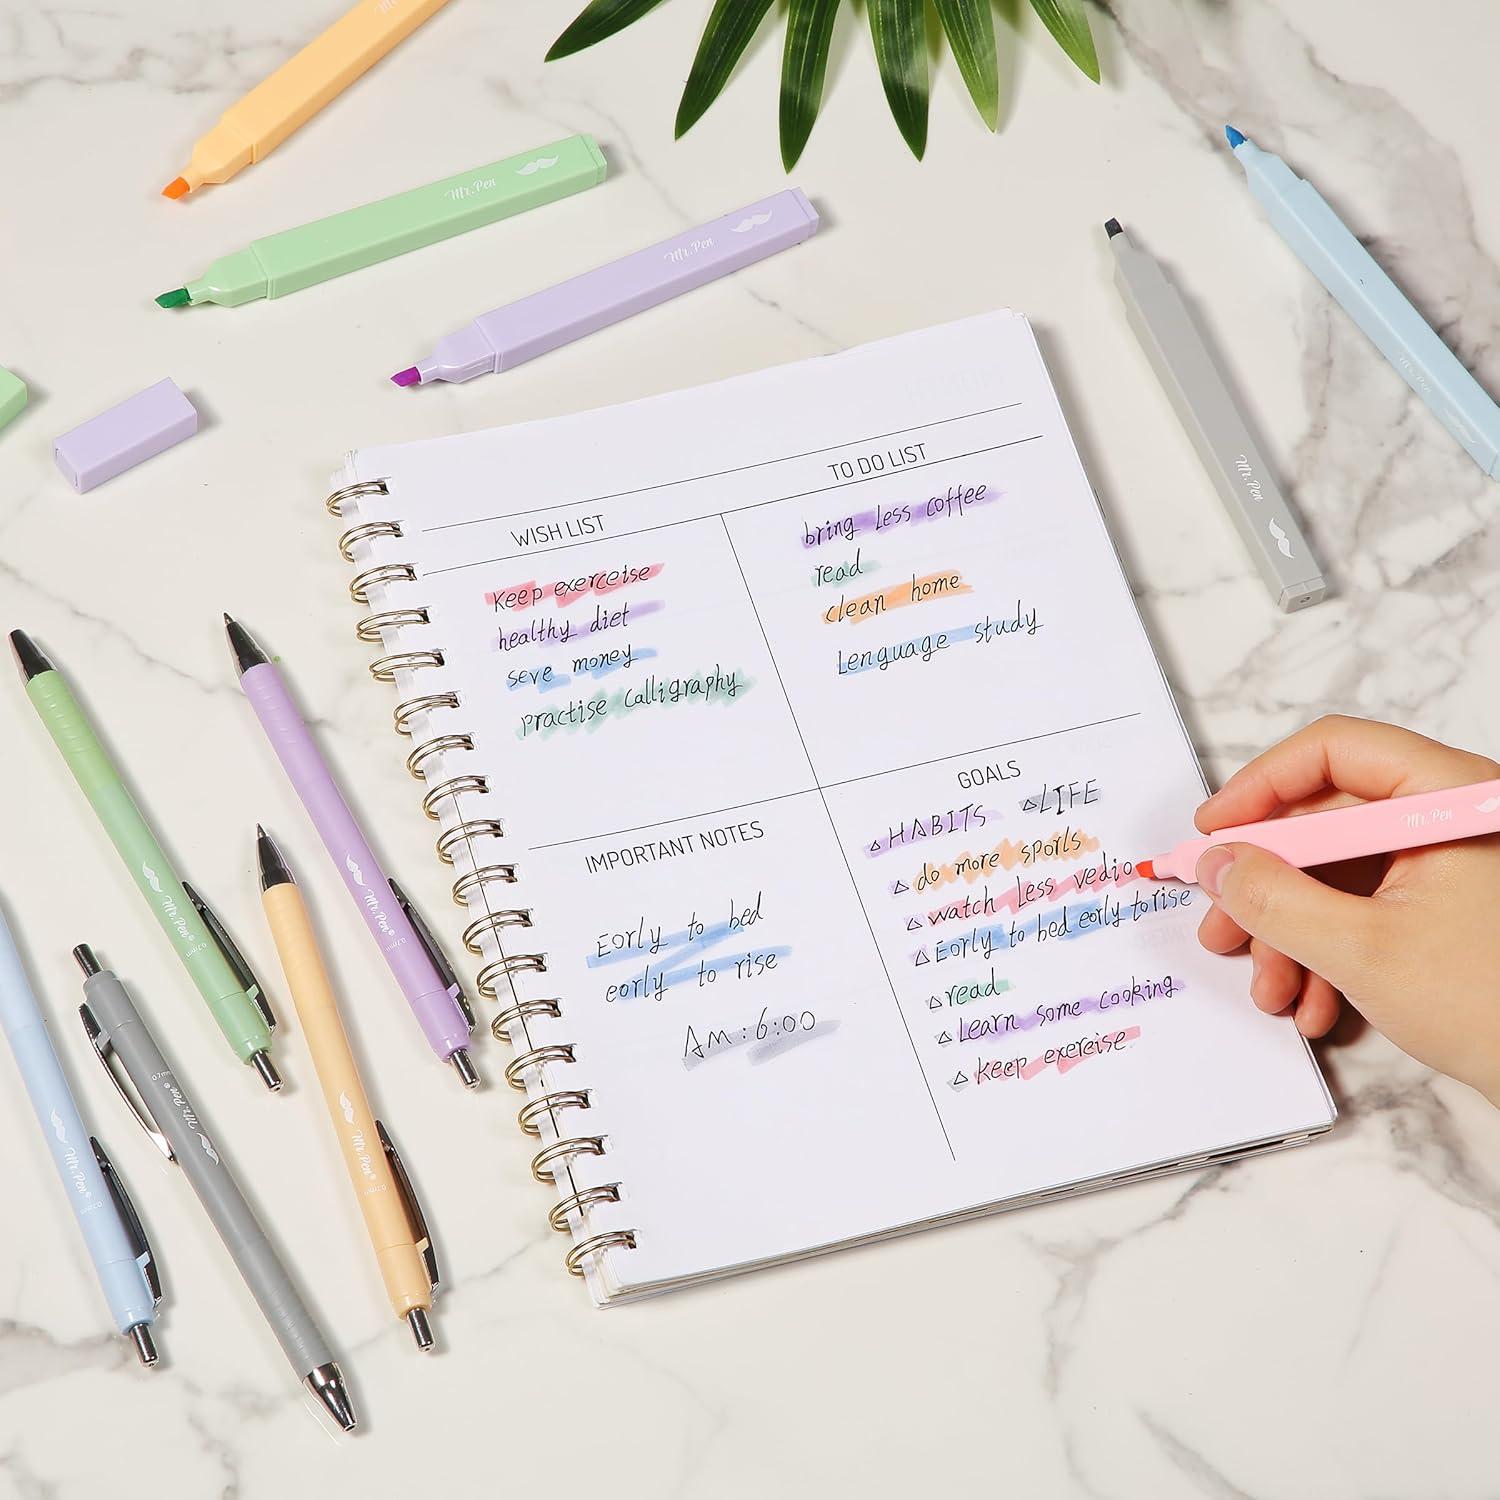 Mr.Pen
Mr.Pen
Mr.Pen
Mr.Pen
WISH LIST
Keep exerceise
healthy diet
seve money
practise calligraphy
TO DO LIST
bring Less coffee
read
clean home
Lenguage study
IMPORTANT NOTES
Eorly to bed
eorly to rise
Am:6:00
GOALS
△HABITS △LIFE
△ do more sports
△ watch Less vedio
△ Eorly to bed eorly to rise
△ read
△ Learn some cooking
△ Keep exereise
Mr.Pen
Mr.Pen® 0.7mm
Mr.Pen®
Mr.Pen® 0.7mm
Mr.Pen® 0.7mm
Mr.Pen® 0.7mm